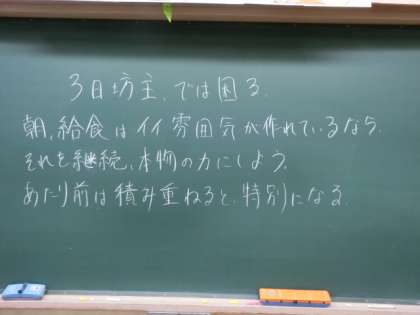 3日坊主、では困る。
朝、給食はイイ雰囲気が作れているなら、
それを継続、本物の力にしよう。
あたり前は積み重ねると、特別になる。